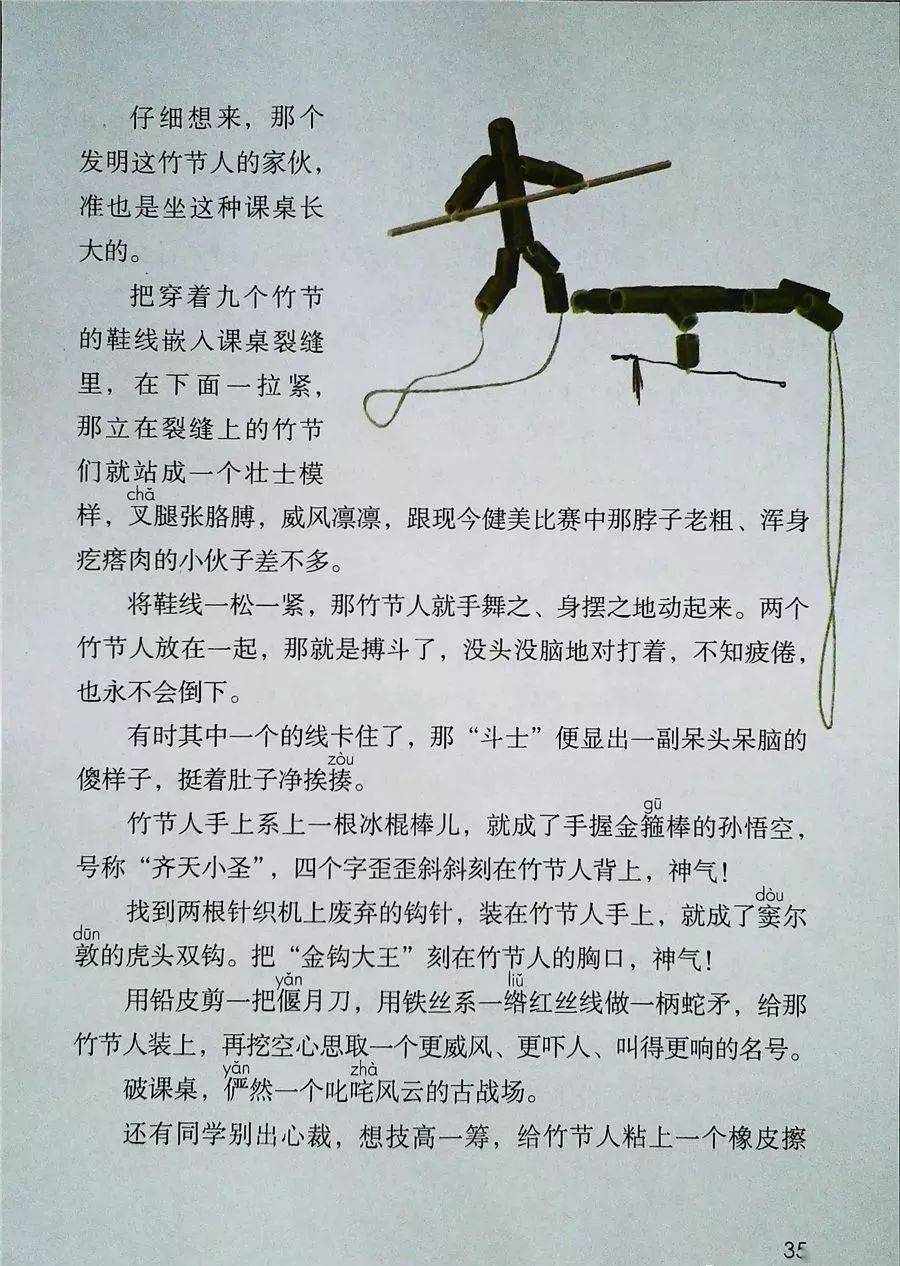 仔细想来，那个
发明这竹节人的家伙，
准也是坐这种课桌长
大的。
把穿着九个竹节
的鞋线嵌入课桌裂缝
里，在下面一拉紧，
那立在裂缝上的竹节
们就站成一个壮士模
chǎ
样，叉腿张胳膊，威风凛凛，跟现今健美比赛中那脖子老粗、浑身
疙瘩肉的小伙子差不多。
将鞋线一松一紧，那竹节人就手舞之、身摆之地动起来。两个
竹节人放在一起，那就是搏斗了，没头没脑地对打着，不知疲倦，
也永不会倒下。
有时其中一个的线卡住了，那“斗士”便显出一副呆头呆脑的
zòu
傻样子，挺着肚子净挨揍。
gū
竹节人手上系上一根冰棍棒儿，就成了手握金箍棒的孙悟空，
号称“齐天小圣”，四个字歪歪斜斜刻在竹节人背上，神气！
dòu
找到两根针织机上废弃的钩针，装在竹节人手上，就成了窦尔
dūn
敦的虎头双钩。把“金钩大王”刻在竹节人的胸口，神气！
yǎn liǔ
用铅皮剪一把偃月刀，用铁丝系一绺红丝线做一柄蛇矛，给那
竹节人装上，再挖空心思取一个更威风、更吓人、叫得更响的名号。
yǎn zhà
破课桌，俨然一个叱咤风云的古战场。
还有同学别出心裁，想技高一筹，给竹节人粘上一个橡皮擦
35